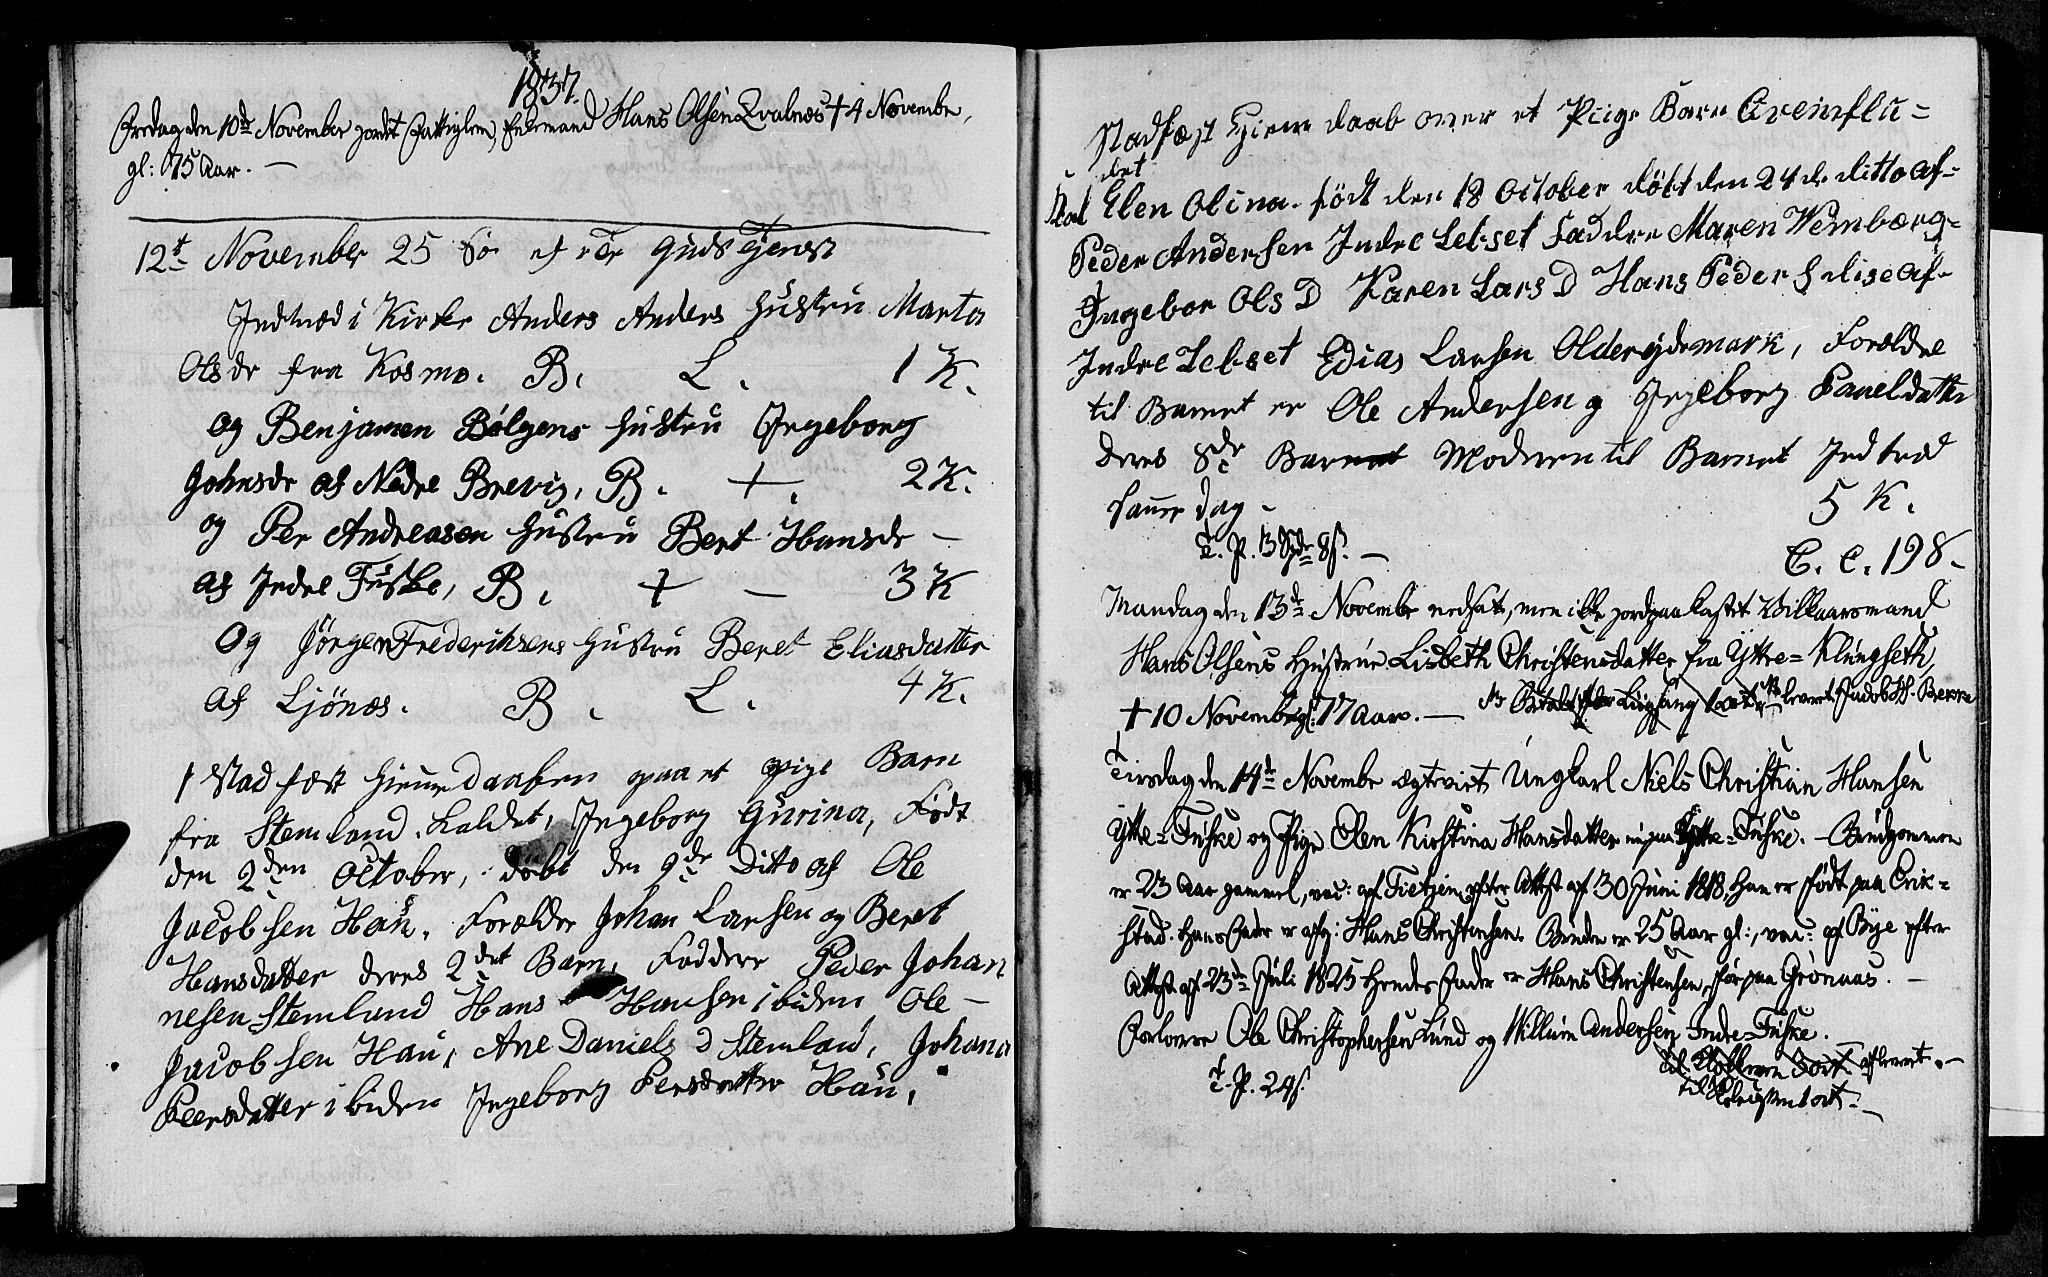 1837.
Fredag den 10de November jordet Fattiglem, Enkemand Hans Olsen Qvalnæs + 4 Novembr,
gl: 75 Aar. —
12t November 25 Sø ef Tr Guds Tjenst
Indtræd i Kirke Anders Anders Hustru Marta
Olsdr fra Kosmo. B. L. 1 K.
og Benjamen Bølgens Hustru Ingeborg
Johnsdr af Nedre Brevig, B. +. 2 K.
og Per Andreasen Hustru Beret Hansdr —
af Indre Fuske, B. + — 3 K
Og Jørgen Frederiksens Hustru Beret Eliasdatter
af Ljönæs. B. L. 4 K.
1 Stadfæst Hiemmedaaben paa et Pige Barn
fra Stemland. Kaldet, Ingeborg Gurina, Født
den 2den October, døbt den 9de Ditto af Ole
Jacobsen Hau. Forældre Johan Larsen og Beret
Hansdatter deres 2det Barn, Faddere Peder Johan
nesen Stemland Hans Hansen ibiden Ole —
Jacobsen Hau, Ane Daniels D Stemland, Johana
Peersdatter ibiden Ingeborg Persdatter Hau.
Stadfæst Hjemedaab over et Piige Barn Greinflu=
det
kal Elen Olina. født den 18 October döbt den 24 de ditto af=
Peder Andersen Indre Lebset Faddere Maren Wembærg=
Ingebor Ols D Karen Lars D Hans Peder af=
Indre Lebset Edias Larsen Oldereidemark, Forældre
til Barnet er Ole Andersen og Ingeborg Paueldatter
deres 8de Barn Moderen til Barnet Indtræd
samme dag — 5 K.
T. P. 3 Spd 8 s. — C. C. 198.
Mandag den 13de Novembr nedsat, men ikke jordpaakastet Vilkaarsmand
Hans Olsens Hustrue Lisbeth Christensdatter fra Yttre=Klungseth,
+ 10 Novembr gl: 77 Aar. — Betalt for Liigsang levert Jacob H. Berre
Tirsdag den 14de Novembr ægteviet Ungkarl Niels Christian Hansen
Ytte=Fuske og Pige Elen Kirstina Hansdatter Ytte=Fuske. — Brudgommen
er 23 Aar gammel, vac: af Tietzen efter Attest af 30 Juni 1818. Han er født paa Erik=
stad. Hans Fader er afg: Hans Christensen. Bruden er 25 Aar gl:, vac: af Bye efter
Attest af 23de Juli 1825 Hendes Fader er Hans Christensen, før paa Grönaas. —
Forlovere Ole Christophersen Lund og Willum Andersen Indre=Fuske.
T. P. 24 s. afleveret. —